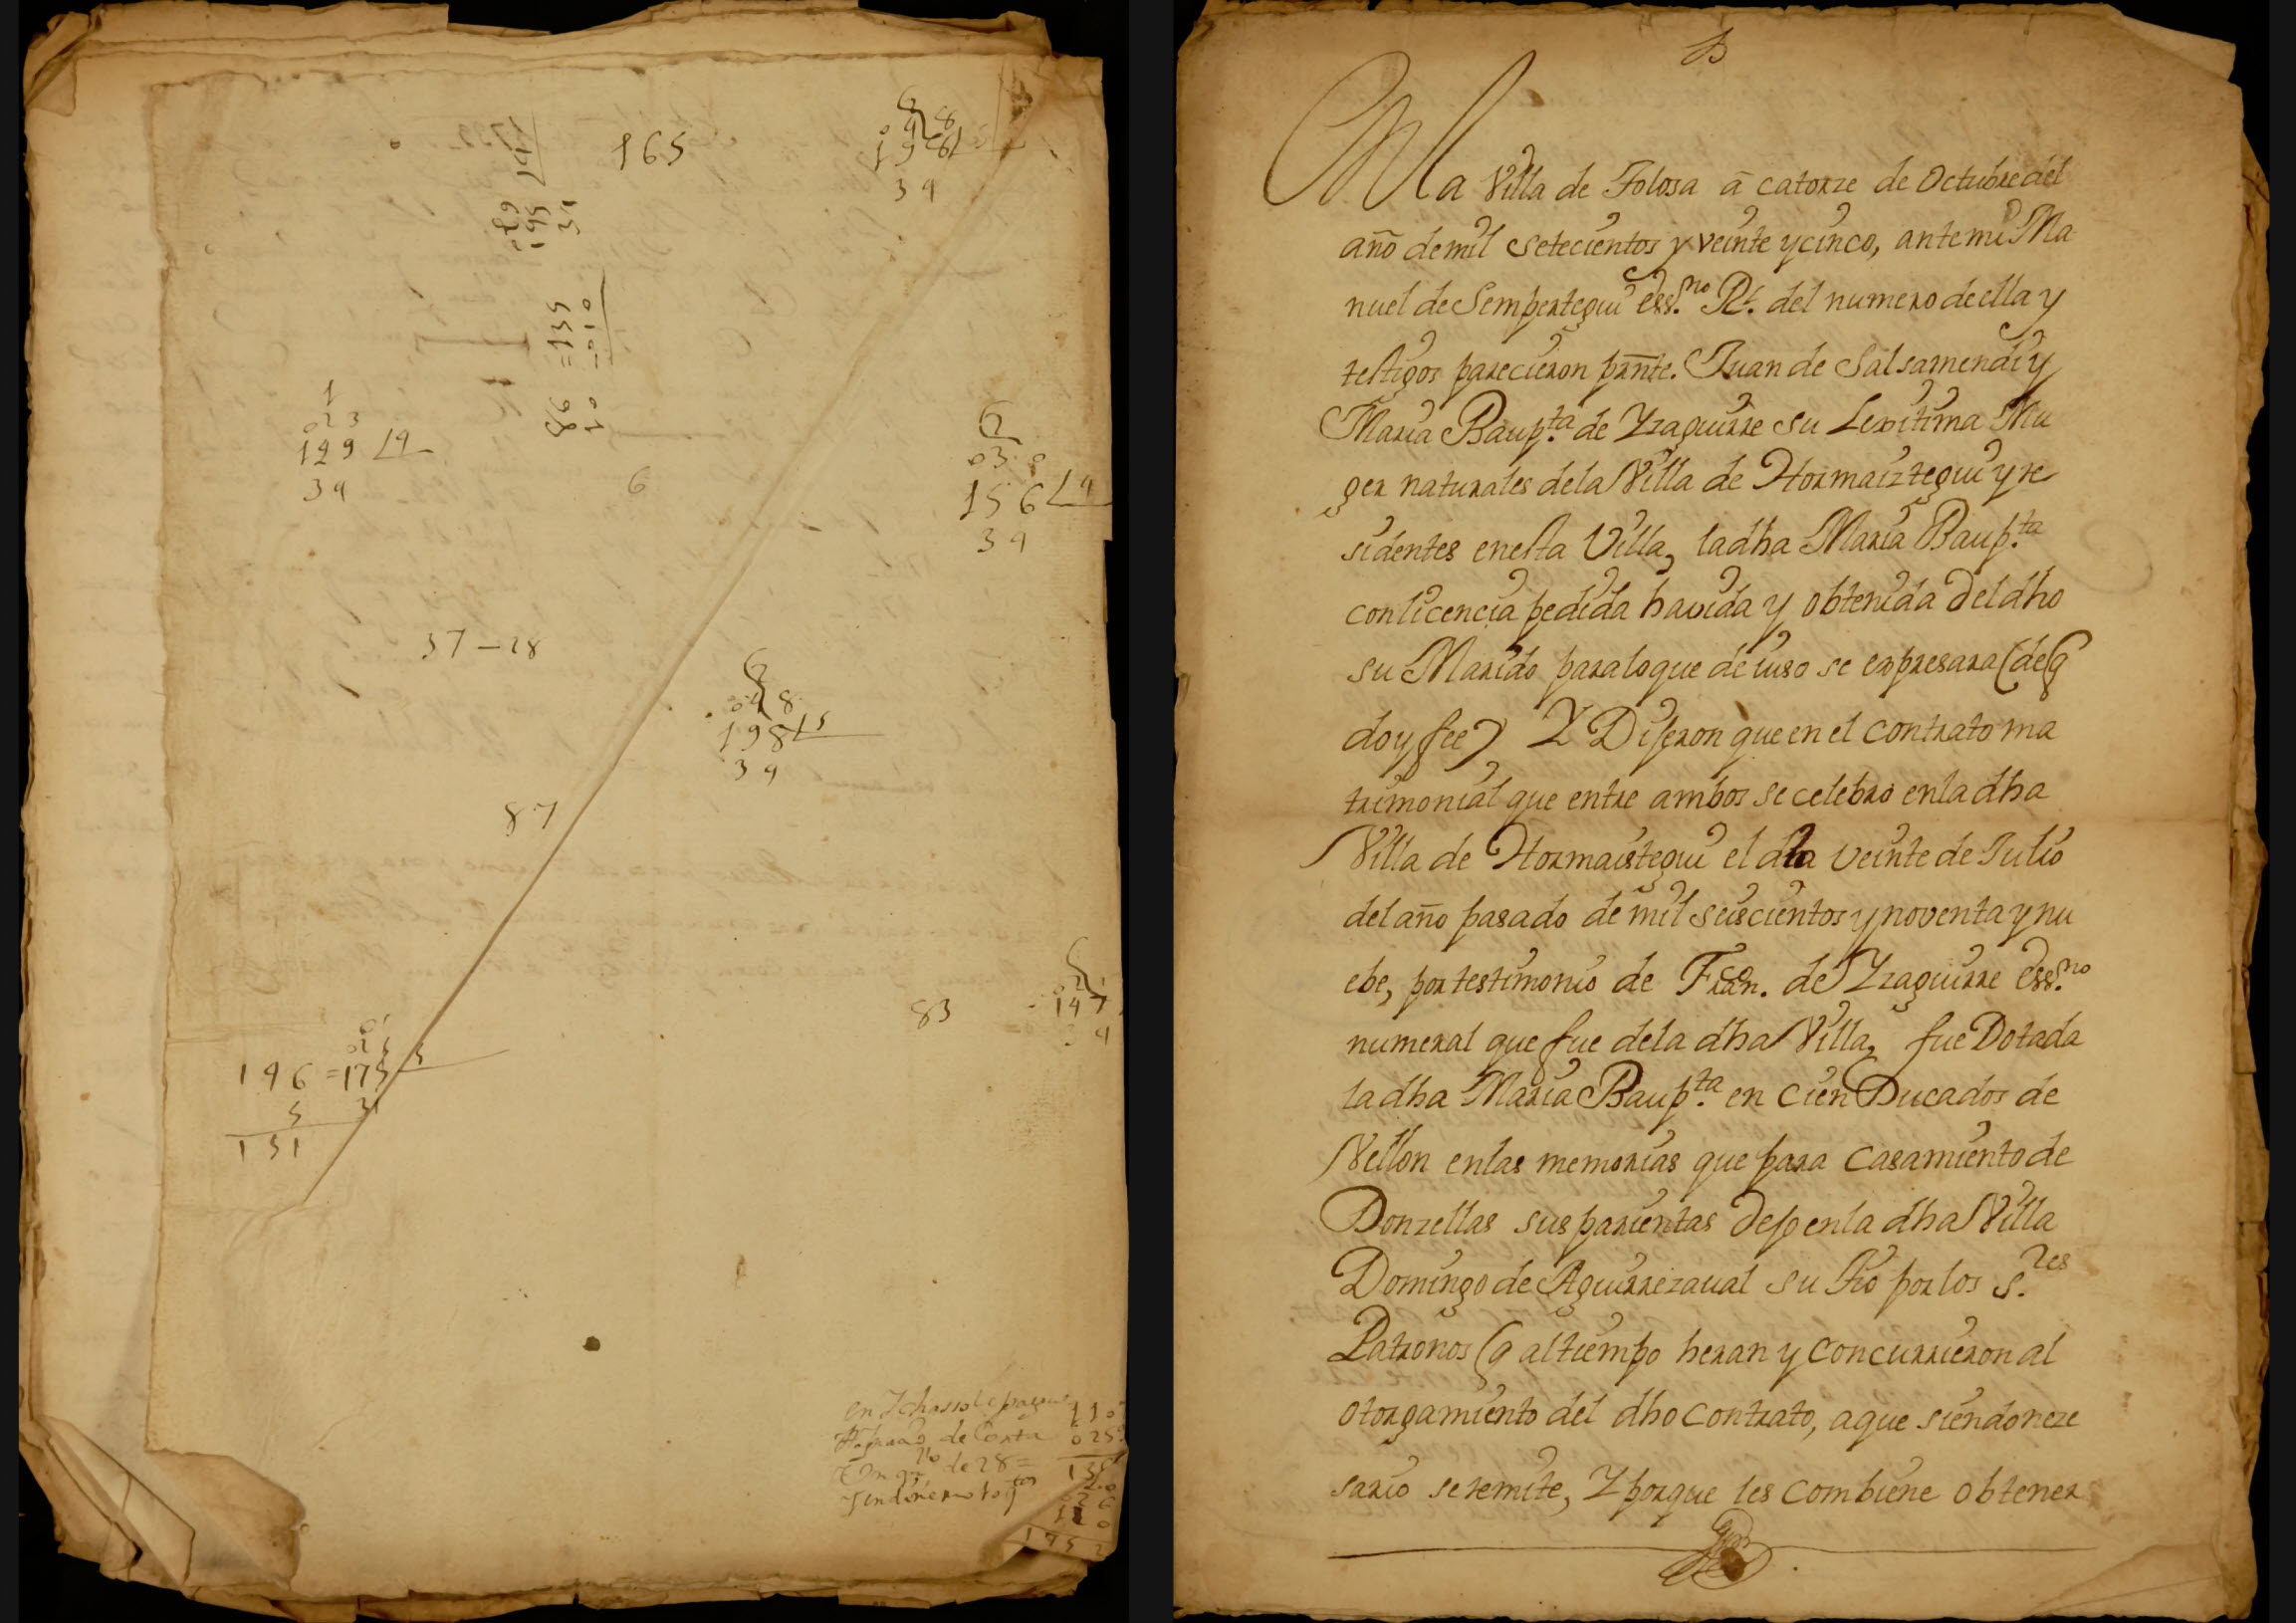 165
6
198
39
149
39
156
39
6
37-28
198
39
87
83
147
196=175
5
151
En la Villa de Tolosa a catorze de Octubre del
año de mil setecientos y veinte y cinco, ante mi Ma
nuel de Sempertegui ess.no Rl. del numero de ella y
testigos parecieron prnte. Juan de Salsamendi y
Maria Baup.ta de Yzaguirre su Lexitima Mu
ger naturales de la Villa de Hormaiztegui y re
sidentes en esta Villa, la dha Maria Baup.ta
con licencia pedida havida y obtenida del dho
su Marido para lo que de iuso se expresara (de q
doy fee) Y Dijeron que en el contrato ma
trimonial que entre ambos se celebro en la dha
Villa de Hormaistegui el dia veinte de Julio
del año pasado de mil seiscientos y noventa y nu
ebe, por testimonio de Fran.co de Yzaguirre ess.no
numeral que fue de la dha Villa, fue Dotada
la dha Maria Baup.ta en cien Ducados de
Vellon en las memorias que para casamiento de
Donzellas sus parientas dejo en la dha Villa
Domingo de Aguirrezaual su tio por los S.res
Patronos (q al tiempo heran y concurrieron al
otorgamiento del dho contrato, a que siendo neze
sario se remite, Y porque les combiene obtener